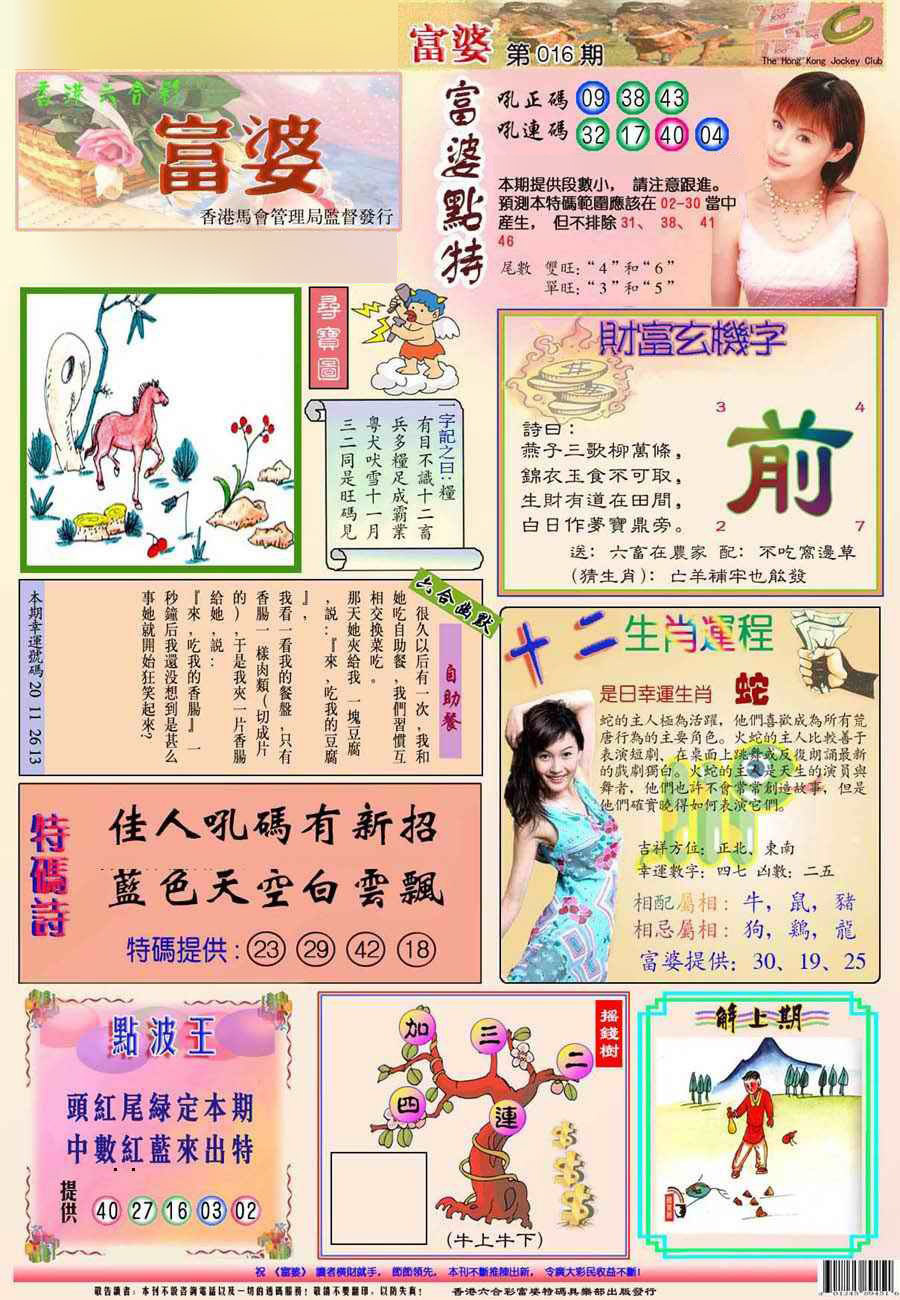 富婆 第016期
The Hong Kong Jockey Club
香港六合彩
富婆
香港馬會管理局監督發行
富婆點特
吼正碼 09 38 43
吼連碼 32 17 40 04
本期提供段數小，請注意跟進。
預測本特碼範圍應該在 02-30 當中
産生，但不排除 31、38、41
46
尾數 雙旺:“4”和“6”
單旺:“3”和“5”
尋寶圖
一字記之曰:糧
有目不識十二畜
兵多糧足成霸業
粵犬吠雪十一月
三二同是旺碼見
財富玄機字
詩曰:
燕子三歌柳萬條，
錦衣玉食不可取，
生財有道在田間，
白日作夢寶鼎旁。
3 4
前
2 7
送: 六畜在農家 配: 不吃窩邊草
(猜生肖): 亡羊補牢也飲發
六合幽默
自助餐
很久以后有一次,我和
她吃自助餐,我們習慣互
相交換菜吃。
那天她夾給我一塊豆腐
,説:『來,吃我的豆腐
』,
我看一看我的餐盤,只有
香腸一樣肉類(切成片
的),于是我夾一片香腸
給她,説:
『來,吃我的香腸』一
秒鐘后我還没想到是甚么
事她就開始狂笑起來?
本期幸運號碼 20 11 26 13
十二生肖運程
是日幸運生肖 蛇
蛇的主人極為活躍，他們喜歡成為所有荒
唐行為的主要角色。火蛇的主人比較善于
表演短劇、在桌面上跳舞或反復朗誦最新
的戲劇獨白。火蛇的主人是天生的演員與
舞者，他們也許不會常常創造故事，但是
他們確實曉得如何表演它們。
吉祥方位: 正北、東南
幸運數字: 四七 凶數: 二五
相配屬相: 牛，鼠，豬
相忌屬相: 狗，鷄，龍
富婆提供: 30、19、25
特碼詩
佳人吼碼有新招
藍色天空白雲飄
特碼提供: 23 29 42 18
點波王
頭紅尾綠定本期
中數紅藍來出特
提供 40 27 16 03 02
搖錢樹
加 三 二
四 連
(牛上牛下)
解上期
祝《富婆》讀者橫財就手，節節領先，本刊不斷推陳出新，令廣大彩民收益不斷!
敬告讀者: 本刊不設咨詢電話以及一切的透碼服務! 敬請不要翻印，以防失真! 香港六合彩富婆特碼具樂部出版發行